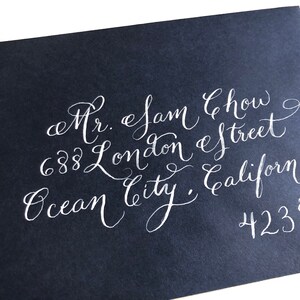 Mr. Sam Chow
688 London Street
Ocean City, Californ
423